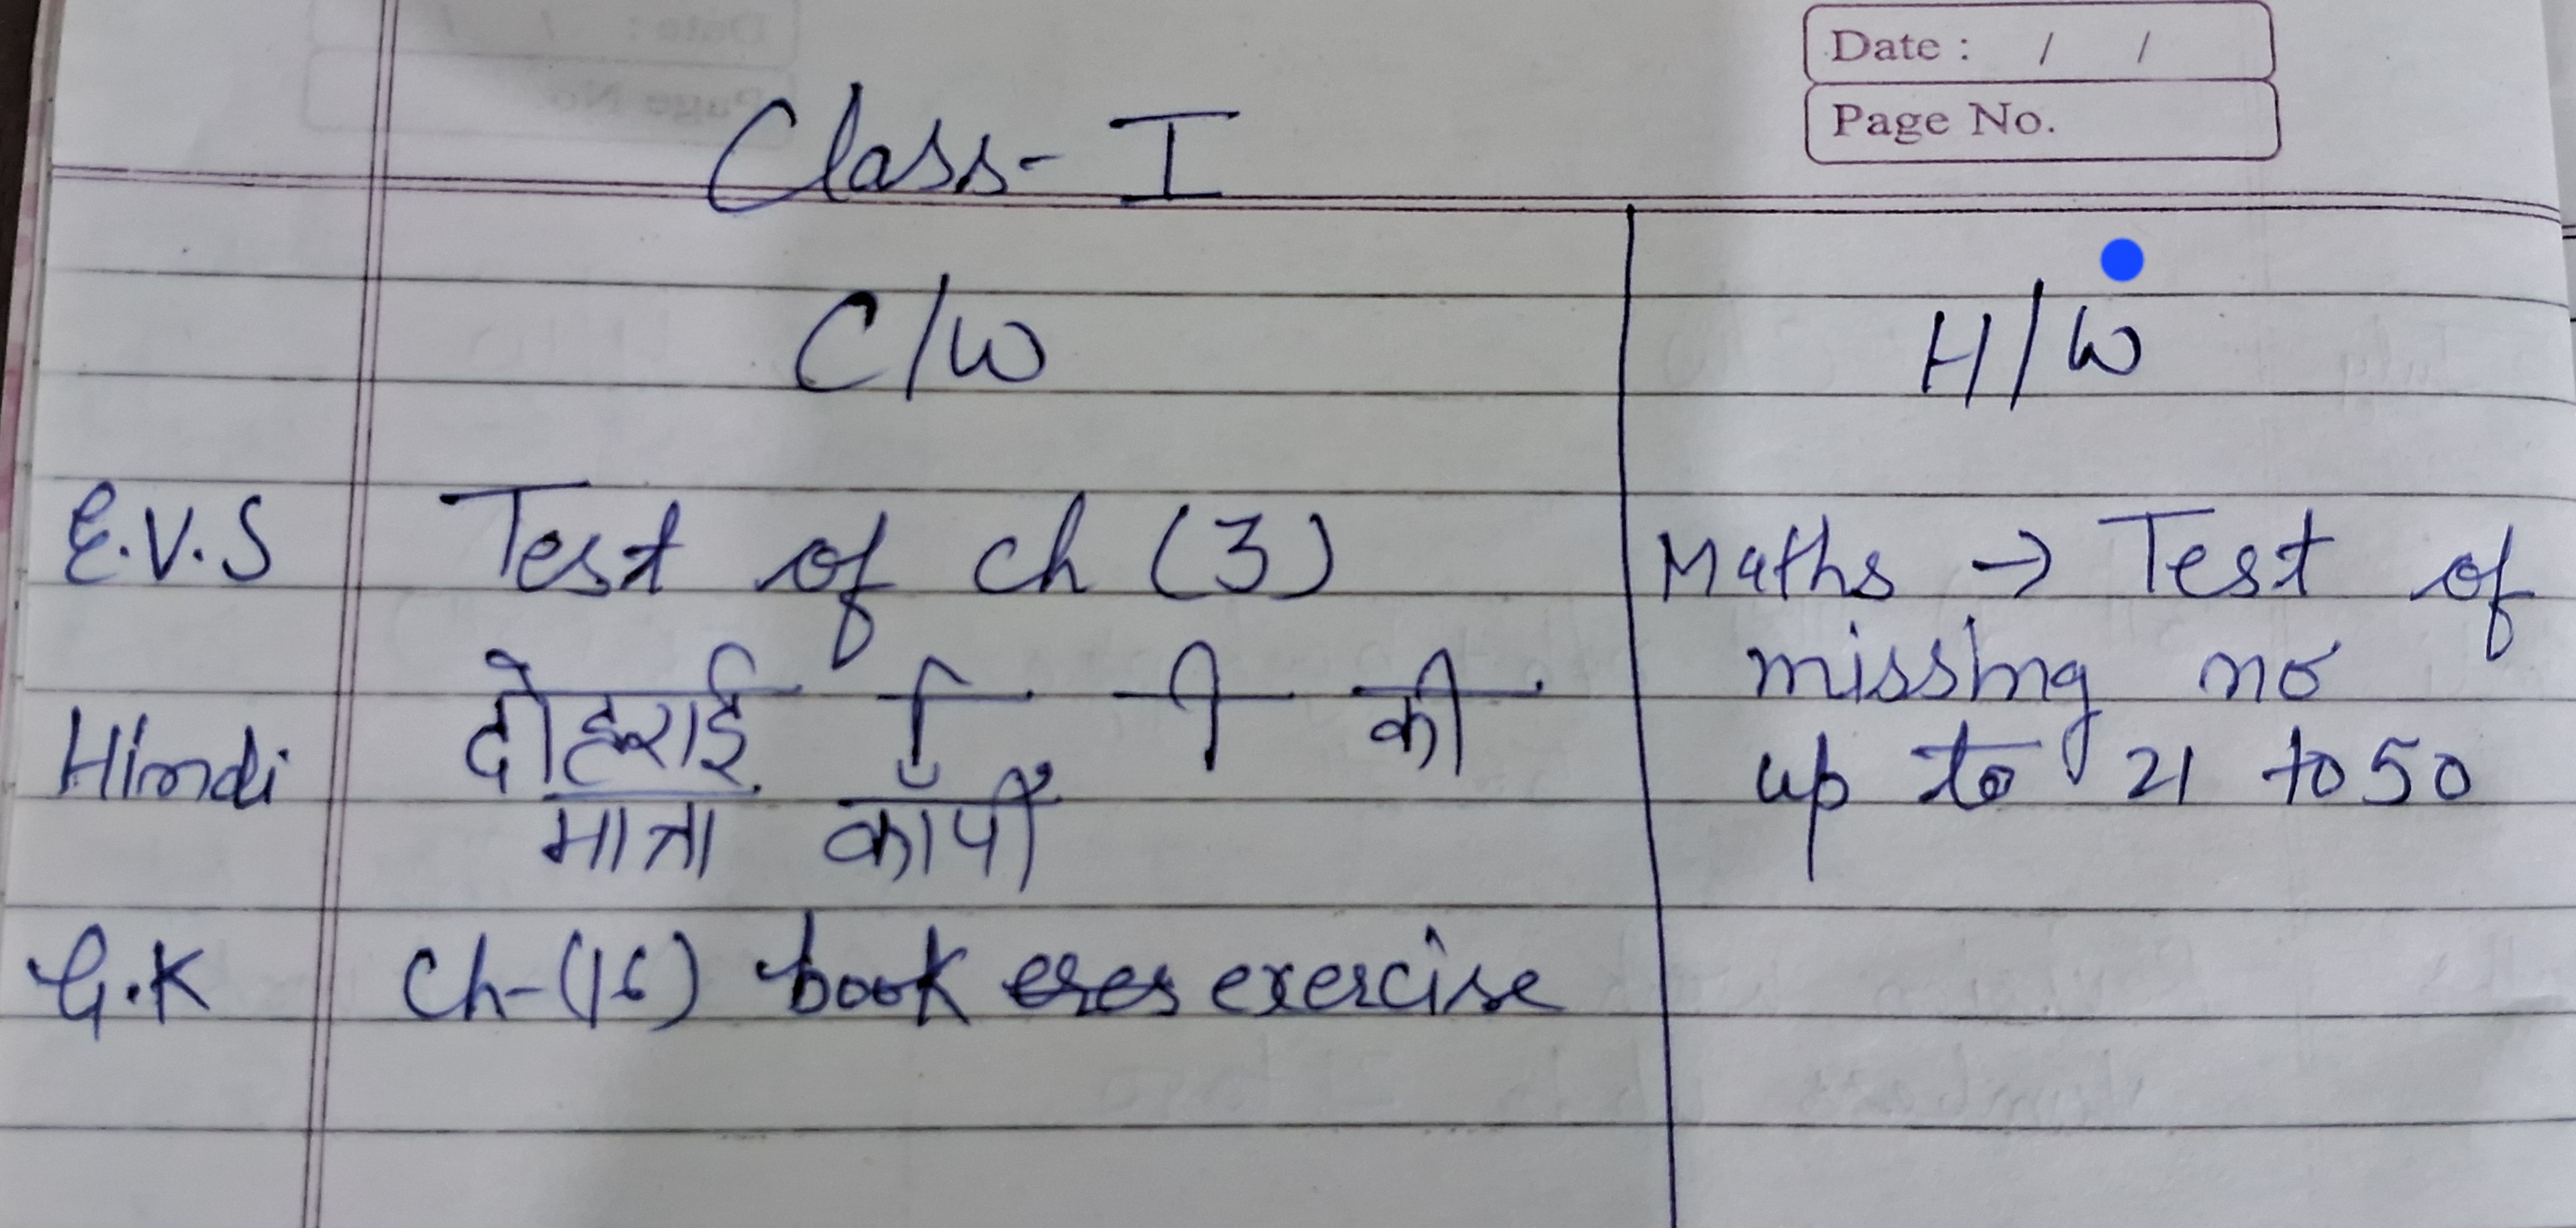 Date : / /
Page No.
Class- I
C/W
H/W
E.V.S Test of ch (3)
Maths → Test of
missing no
up to 21 to 50
Hindi दोहराई ि ी की
मात्रा कॉपी
G.K Ch-(16) book exercise